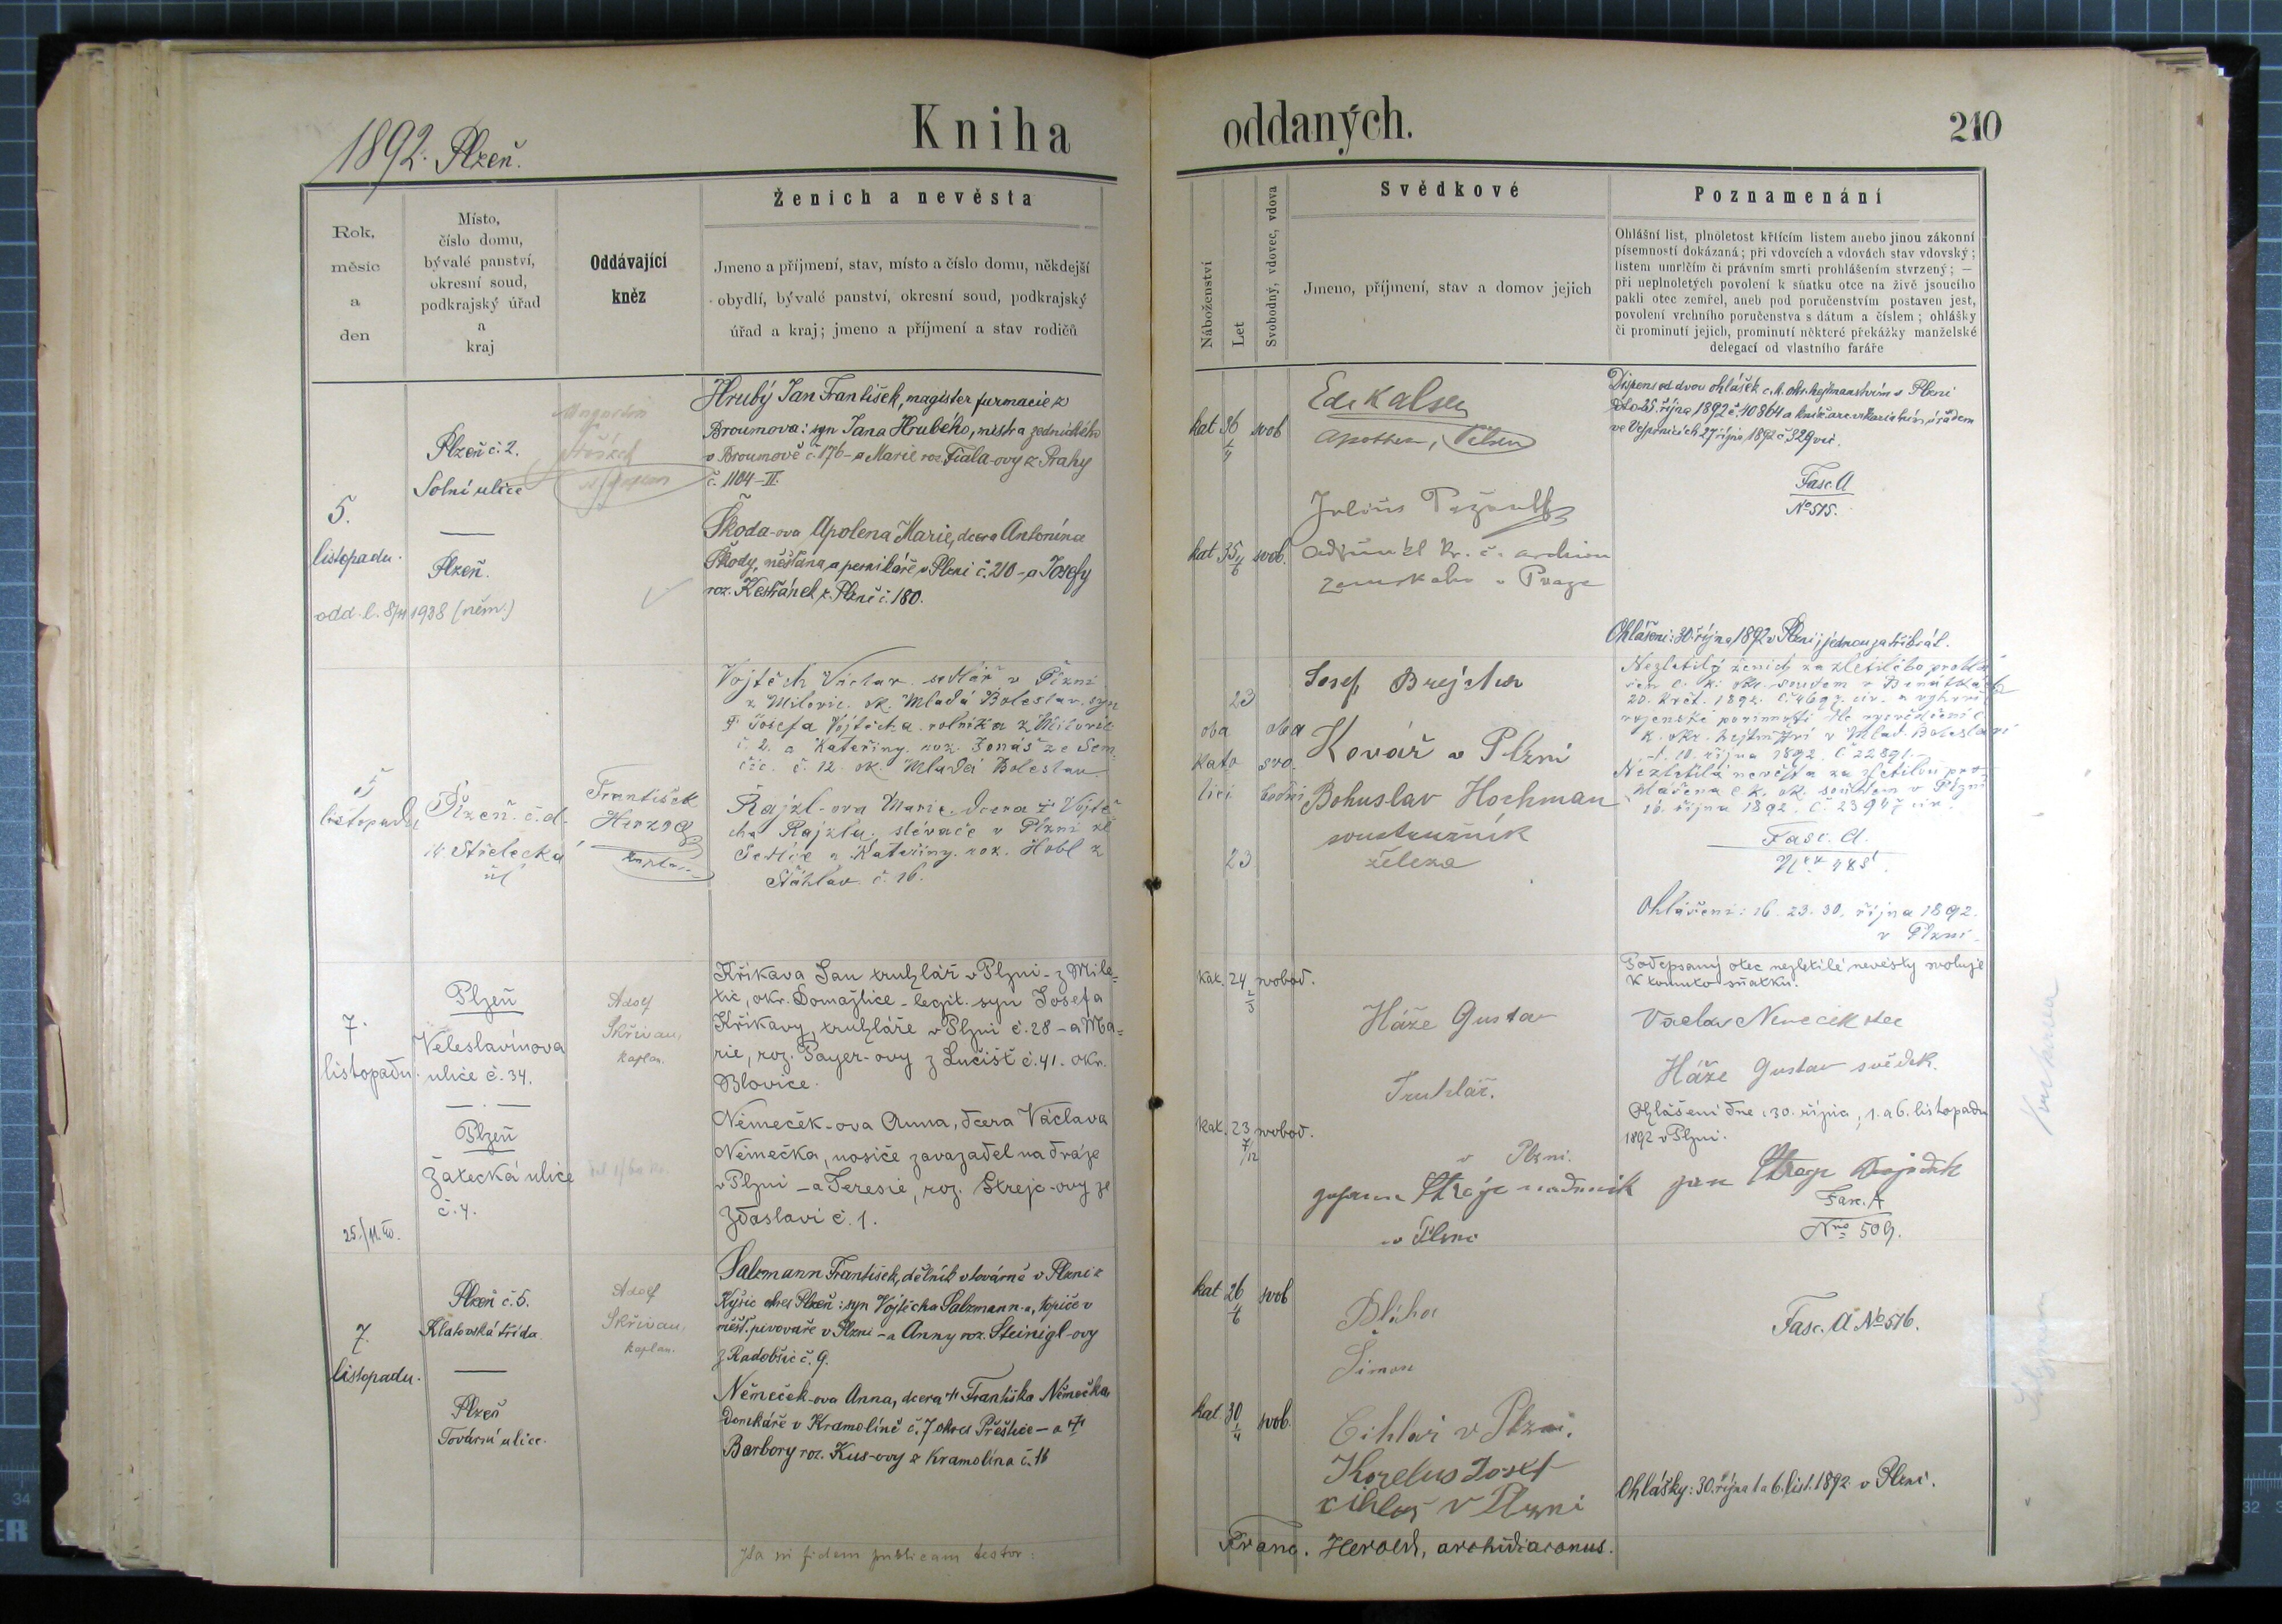 1892. Plzeň.
Kniha
oddaných.
210
Rok,
měsíc
a
den
Místo,
číslo domu,
bývalé panství,
okresní soud,
podkrajský úřad
a
kraj
Oddávající
kněz
Ženich a nevěsta
Jmeno a příjmení, stav, místo a číslo domu, někdejší
obydlí, bývalé panství, okresní soud, podkrajský
úřad a kraj; jmeno a příjmení a stav rodičů
Náboženství
Let
Svobodný, vdovec, vdova
Svědkové
Jmeno, příjmení, stav a domov jejich
Poznamenání
Ohlášní list, plnoletost křticím listem anebo jinou zákonní
písemností dokázaná; při vdovcích a vdovách stav vdovský;
listem umrlčím či právním smrti prohlášením stvrzený; —
při neplnoletých povolení k sňatku otce na živě jsoucího
pakli otec zemřel, aneb pod poručenstvím postaven jest,
povolení vrchního poručenstva s dátum a číslem; ohlášky
či prominutí jejich, prominutí některé překážky manželské
delegací od vlastního faráře
5.
listopadu.
odd. l. 8/11 1938 (něm.)
Plzeň č. 2.
Solní ulice
—
Plzeň.
Hrubý Jan František, magister farmacie z
Broumova: syn Jana Hrubého, mistra zednického
v Broumově č. 176 - a Marie roz. Fiala-ovy z Prahy
č. 1104-II.
Škoda-ova Apolena Marie, dcera Antonína
Škody, měšťana a perníkáře v Plzni č. 210 - a Josefy
roz. Kestřánek z Plzně č. 180.
kat. 36 svob
kat. 35 svob.
Apotheker, Pilsen
Julius
zemského v Praze
Dispens od dvou ohlášek c. k. okr. hejtmanstvím v Plzni
dto 25. října 1892 č. 40864 a knížearc. vikariátním úřadem
ve Vejprnicích 27 října 1892 č. 329
Fasc. A
No 515.
Ohlášeni: 30. října 1892 v Plzni jednou za třikrát.
5
listopadu
Plzeň. č. d.
14. Střelecká
ul
František
Herzog
kaplan
Vojtěch Václav sedlář v Plzni
z Milovic. ok. Mladá Boleslav. syn
† Josefa Vojtěcha rolníka z Milovic
č. 2. a Kateřiny. roz. Jonáš ze Sem
čic. č. 12. ok. Mladá Boleslav.
Rajzl-ova Marie. dcera † Vojtě
cha Rajzlu. slévače v Plzni
Sedlce a Kateřiny. roz. Hobl z
Stáhlav č. 16.
23
oba
kato
lici
23
oba
svo.
bodni
Josef Brejcha
Kovář v Plzni
Bohuslav Hochman
soustružník
železa
Nezletilý ženich za zletilého prohlá
šen c. k. okr. soudem v Benátkách
20. květ. 1892. č. 4697. civ. a vyhověl
vojenské povinnosti dle vysvědčení c.
k. okr. hejtmství v Mlad. Boleslavi
d. 10. října 1892. č. 22891.-
Nezletilá nevěsta za zletilou pro-
hlášena c. k. ok. soudem v Plzni
16. října 1892. č. 23947 civ.
Fasc. A.
Nro 485.
Ohlášeni: 16. 23. 30. října 1892.
v Plzni.
7.
listopadu.
25./11.40.
Plzeň
Veleslavínova
ulice č. 34.
Plzeň
Žatecká ulice
č. 4.
Adolf
Skřivan,
kaplan.
Křikava Jan truhlář v Plzni - z Mile-
tic, okr. Domažlice - legit. syn Josefa
Křikavy, truhláře v Plzni č. 28 - a Ma-
rie, roz. Payer-ovy z Lučišť č. 41. okr.
Blovice.
Němeček-ova Anna, dcera Václava
Němečka, nosiče zavazadel na dráze
v Plzni - a Teresie, roz. Strejc-ovy ze
Zdaslavi č. 1.
kat. 24 2/3 svobod.
kat. 23 7/12 svobod.
Háže Gustav
Truhlář.
v Plzni.
Strejc nadenník
v Plzni
Podepsaný otec nezletilé nevěsty svoluje
k tomuto sňatku.
Václav Nemecek otec
Háže Gustav svědek.
Ohlášeni dne: 30. října; 1. a 6. listopadu
1892 v Plzni.
Fasc. A
Nro 509.
7.
listopadu.
Plzeň č. 5.
Klatovská třída.
—
Plzeň
Tovární ulice.
Adolf
Skřivan,
kaplan.
Salzmann František, dělník v továrně v Plzni z
Kyšic okres Plzeň: syn Vojtěcha Salzmann-a, topiče v
měšť. pivovaře v Plzni - a Anny roz. Steinigl-ovy
z Radobšic č. 9.
Němeček-ova Anna, dcera † Františka Němečka
domkáře v Kramolíně č. 7 okres Přeštice - a †
Barbory roz. Kus-ovy z Kramolína č. 16
kat. 26 svob
kat. 30 1/4 svob.
Bláha
Šimon
Cihlář v Plzni.
Korelus Josef
cihlář v Plzni
Fasc. A No 516.
Ohlášky: 30. října 1 a 6. list. 1892 v Plzni.
Ita in fidem publicam testor:
Franc. Herold, archidiaconus.